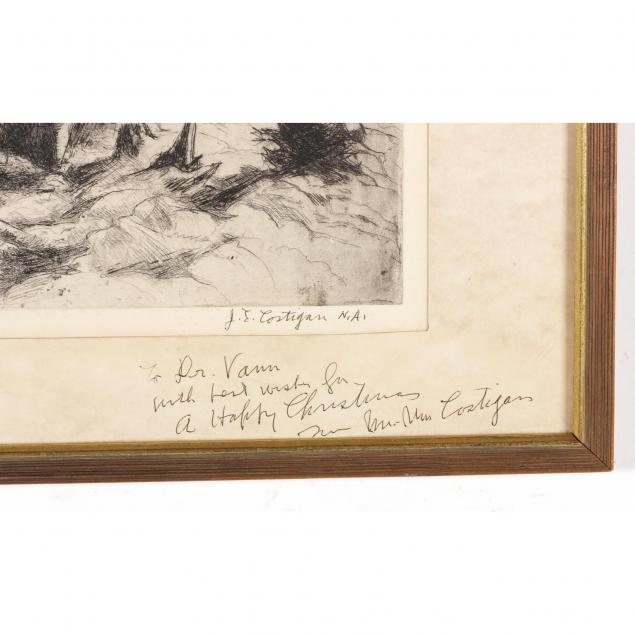 J. E. Costigan N.A.
To Dr. Vann
with best wishes for
A Happy Christmas
Costigan